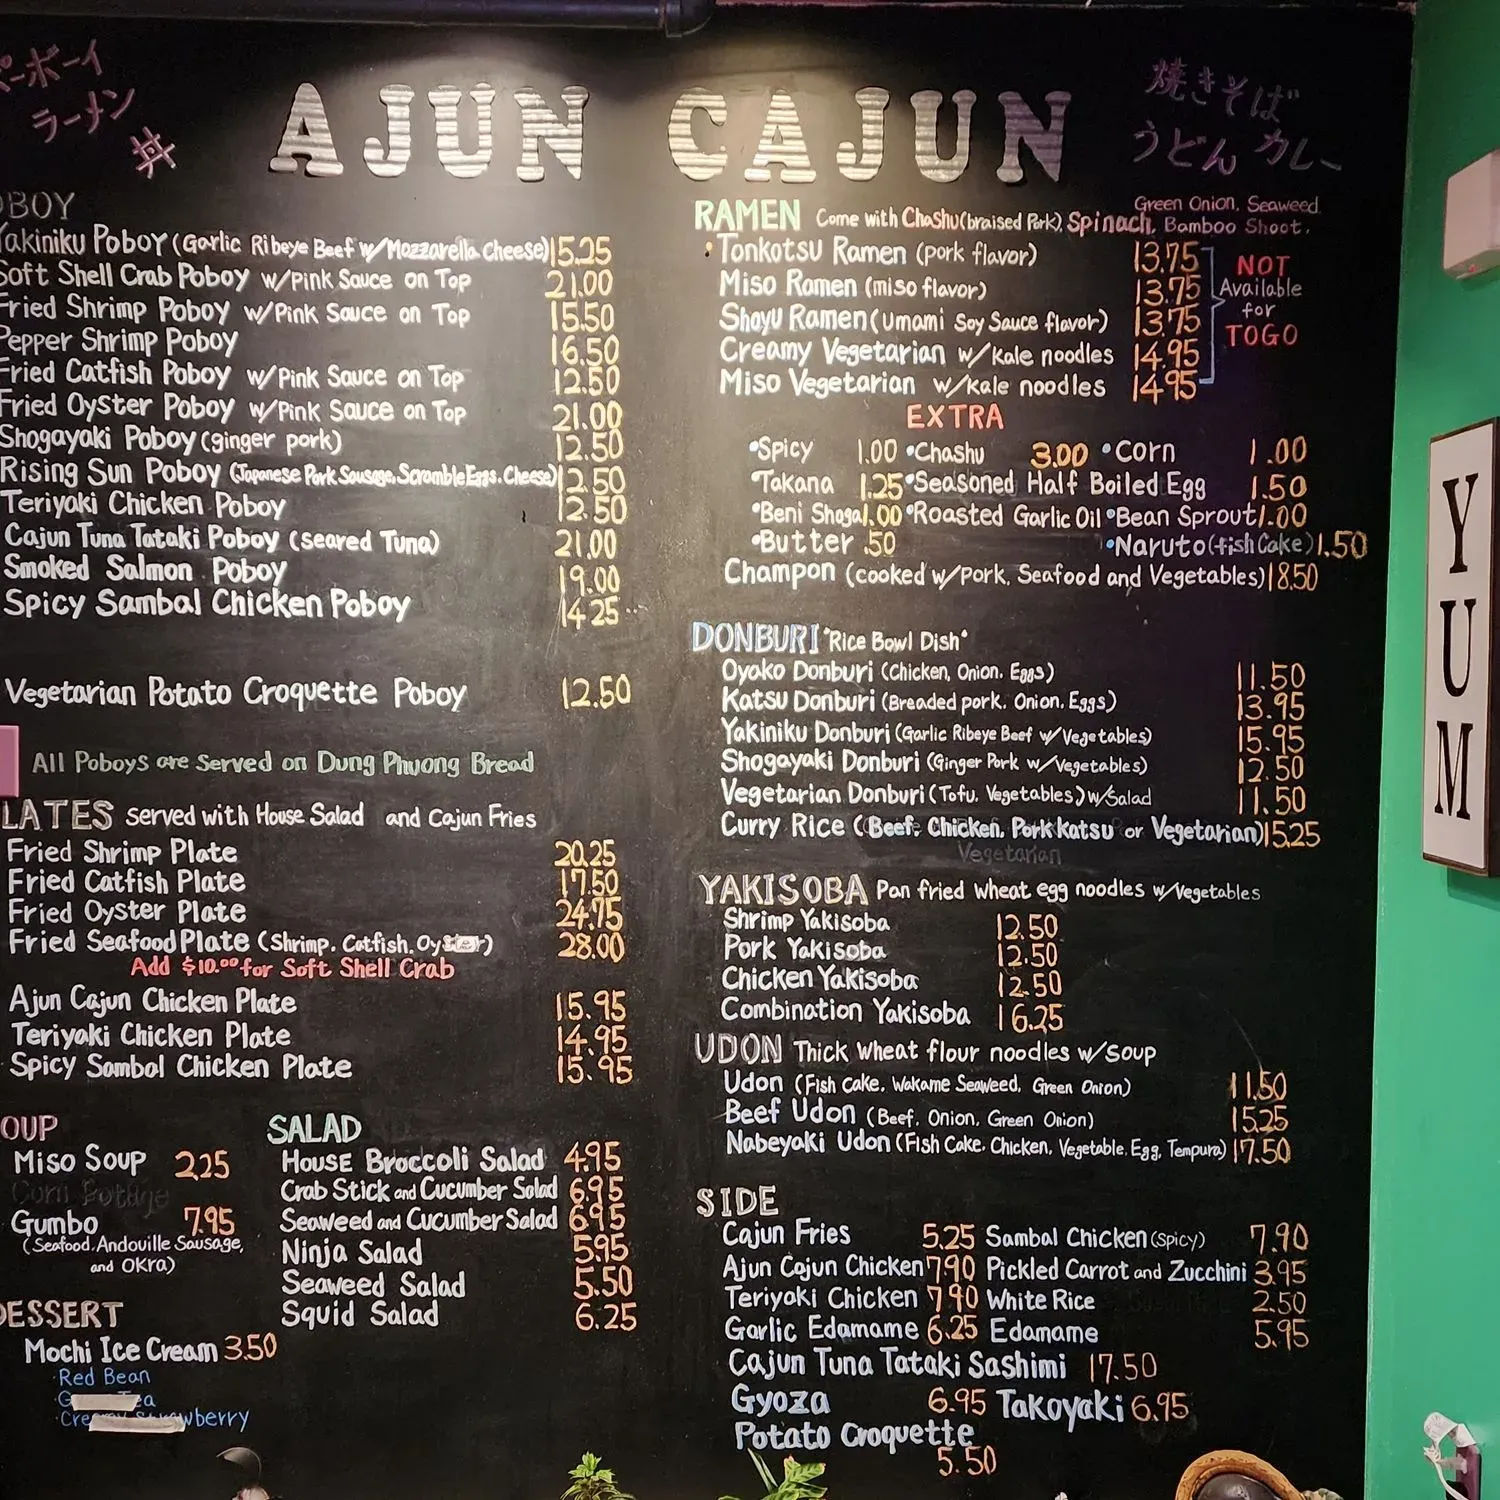 パーボーイ
ラーメン
丼
AJUN CAJUN
焼きそば
うどん カレー
OBOY
Yakiniku Poboy (Garlic Ribeye Beef w/Mozzarella Cheese) 15.25
Soft Shell Crab Poboy w/Pink Sauce on Top 21.00
Fried Shrimp Poboy w/Pink Sauce on Top 15.50
Pepper Shrimp Poboy 16.50
Fried Catfish Poboy w/Pink Sauce on Top 12.50
Fried Oyster Poboy w/Pink Sauce on Top 21.00
Shogayaki Poboy (ginger pork) 12.50
Rising Sun Poboy (Japanese Pork Sausage, Scramble Eggs, Cheese) 12.50
Teriyaki Chicken Poboy 12.50
Cajun Tuna Tataki Poboy (seared Tuna) 21.00
Smoked Salmon Poboy 19.00
Spicy Sambal Chicken Poboy 14.25
Vegetarian Potato Croquette Poboy 12.50
All Poboys are served on Dung Phuong Bread
LATES served with House Salad and Cajun Fries
Fried Shrimp Plate 20.25
Fried Catfish Plate 17.50
Fried Oyster Plate 24.75
Fried Seafood Plate (Shrimp, Catfish, Oyster) 28.00
Add $10.00 for Soft Shell Crab
Ajun Cajun Chicken Plate 15.95
Teriyaki Chicken Plate 14.95
Spicy Sambal Chicken Plate 15.95
OUP
Miso Soup 2.25
Corn Potage
Gumbo 7.95
(Seafood, Andouille Sausage,
and OKra)
DESSERT
Mochi Ice Cream 3.50
Red Bean
Creamy Strawberry
SALAD
House Broccoli Salad 4.95
Crab Stick and Cucumber Salad 6.95
Seaweed and Cucumber Salad 6.95
Ninja Salad 5.95
Seaweed Salad 5.50
Squid Salad 6.25
RAMEN Come with Chashu (braised Pork), Spinach, Green Onion, Seaweed, Bamboo Shoot.
Tonkotsu Ramen (pork flavor) 13.75
Miso Ramen (miso flavor) 13.75
Shoyu Ramen (umami Soy Sauce flavor) 13.75
Creamy Vegetarian w/kale noodles 14.95
Miso Vegetarian w/kale noodles 14.95
NOT
Available
for
TOGO
EXTRA
•Spicy 1.00 •Chashu 3.00 •Corn 1.00
•Takana 1.25 •Seasoned Half Boiled Egg 1.50
•Beni Shoga 1.00 •Roasted Garlic Oil •Bean Sprout 1.00
•Butter .50 •Naruto (fish Cake) 1.50
Champon (cooked w/Pork, Seafood and Vegetables) 18.50
DONBURI "Rice Bowl Dish"
Oyako Donburi (Chicken, Onion, Eggs) 11.50
Katsu Donburi (Breaded pork, Onion, Eggs) 13.95
Yakiniku Donburi (Garlic Ribeye Beef w/Vegetables) 15.95
Shogayaki Donburi (Ginger Pork w/Vegetables) 12.50
Vegetarian Donburi (Tofu, Vegetables) w/Salad 11.50
Curry Rice (Beef, Chicken, Pork Katsu or Vegetarian) 15.25
Vegetarian
YAKISOBA Pan fried wheat egg noodles w/Vegetables
Shrimp Yakisoba 12.50
Pork Yakisoba 12.50
Chicken Yakisoba 12.50
Combination Yakisoba 16.25
UDON Thick wheat flour noodles w/soup
Udon (Fish Cake, Wakame Seaweed, Green Onion) 11.50
Beef Udon (Beef, Onion, Green Onion) 15.25
Nabeyaki Udon (Fish Cake, Chicken, Vegetable, Egg, Tempura) 17.50
SIDE
Cajun Fries 5.25 Sambal Chicken (Spicy) 7.90
Ajun Cajun Chicken 7.90 Pickled Carrot and Zucchini 3.95
Teriyaki Chicken 7.90 White Rice 2.50
Garlic Edamame 6.25 Edamame 5.95
Cajun Tuna Tataki Sashimi 17.50
Gyoza 6.95 Takoyaki 6.95
Potato Croquette
5.50
YUM